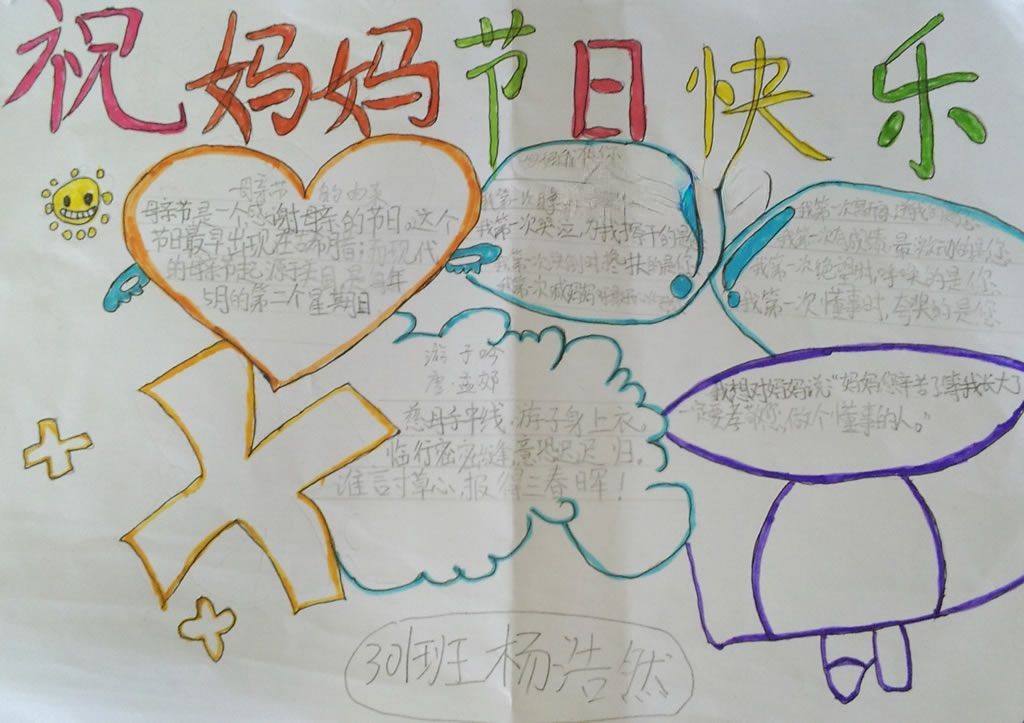 祝妈妈节日快乐
母亲节的由来
母亲节是一个感谢母亲的节日。这个
节日最早出现在古希腊;而现代
的母亲节起源于美国是每年
5月的第二个星期日
我第一次
我第一次哭泣,为我擦干的是
我第一次跌倒时,搀扶的是您
我第一次喊妈妈时
我第一次
我第一次有成绩,最激动的是您
我第一次绝望时,呼喊的是您
我第一次懂事时,夸奖的是您
游子吟
唐·孟郊
慈母手中线,游子身上衣。
临行密密缝,意恐迟迟归。
谁言寸草心,报得三春晖!
我想对妈妈说:“妈妈您辛苦了等我长大了
一定要孝敬您,做个懂事的人。”
301班杨浩然